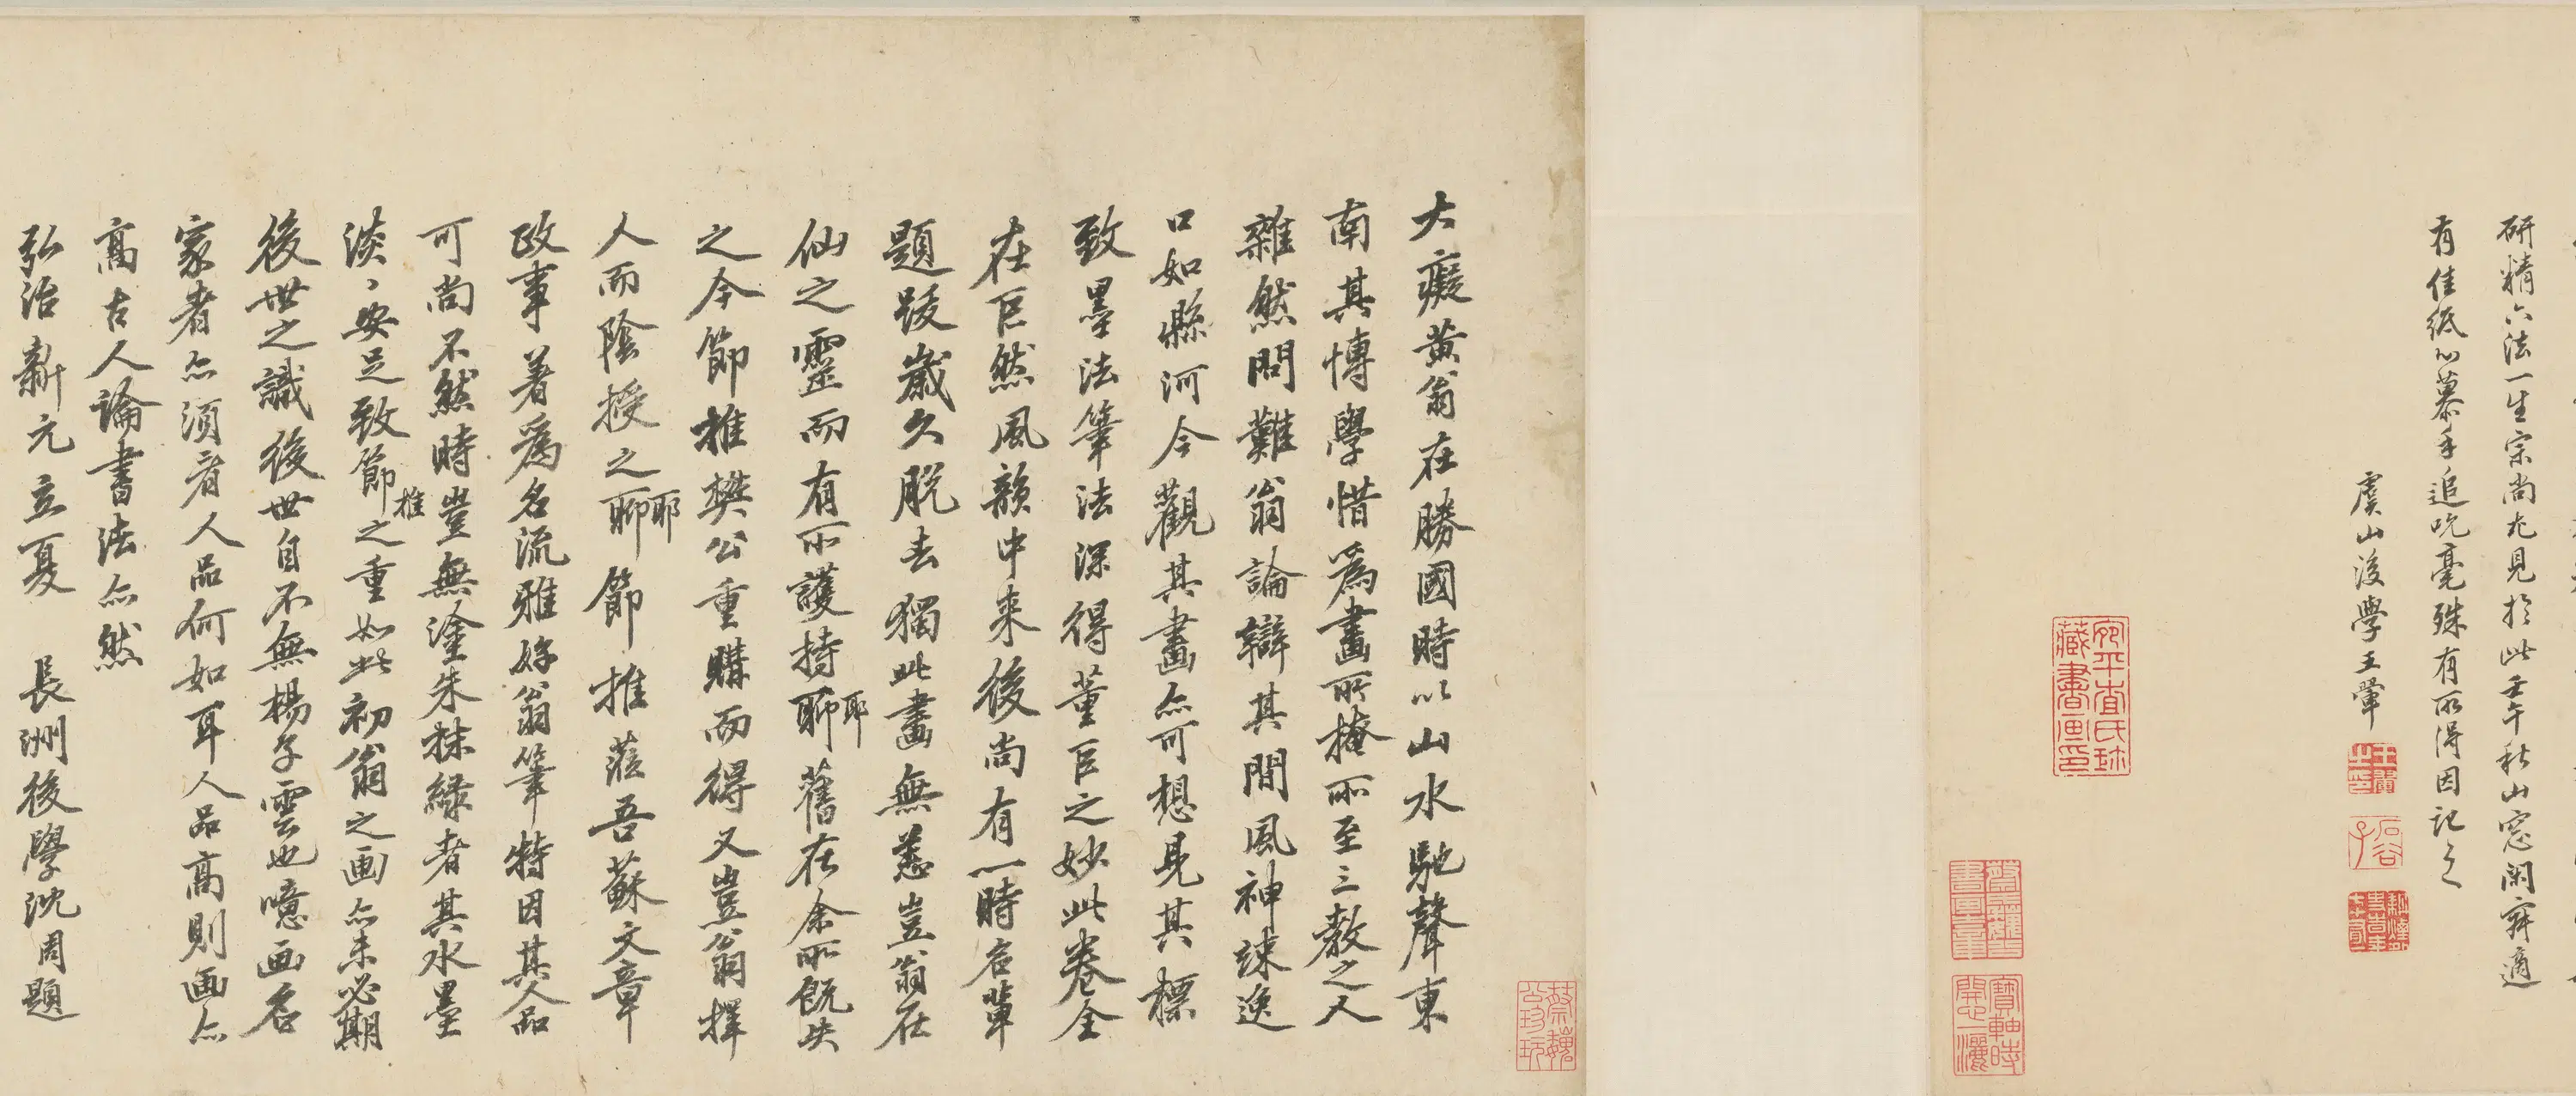 研精六法一生宗尚尤見於此壬午秋山窓閑寂適
有佳紙心慕手追吮毫殊有所得因記之
虞山後學王翬
宛平查氏珍
藏書画印
蔡魏公
書畫章
寶軸時
開心一灑
蔡魏
公珍玩
大癡黄翁在勝國時以山水馳聲東
南其博學惜爲畫所掩所至三教之人
雜然問難翁論辯其間風神竦逸
口如懸河今觀其畫亦可想見其標
致墨法筆法深得董巨之妙此卷全
在巨然風韻中来後尚有一時名輩
題跋歲久脱去獨此畫無恙豈翁在
仙之靈而有所護持聊耶舊在余所既失
之今節推樊公重購而得又豈翁擇
人而陰授之聊耶節推蒞吾蘇文章
政事著爲名流雅好翁筆特因其人品
可尚不然時豈無塗朱抹綠者其水墨
淡丶安足致節推之重如此初翁之画亦未必期
後世之識後世自不無楊子雲也噫画名
家者亦須看人品何如耳人品高則画亦
高古人論書法亦然
弘治新元立夏 長洲後學沈周題